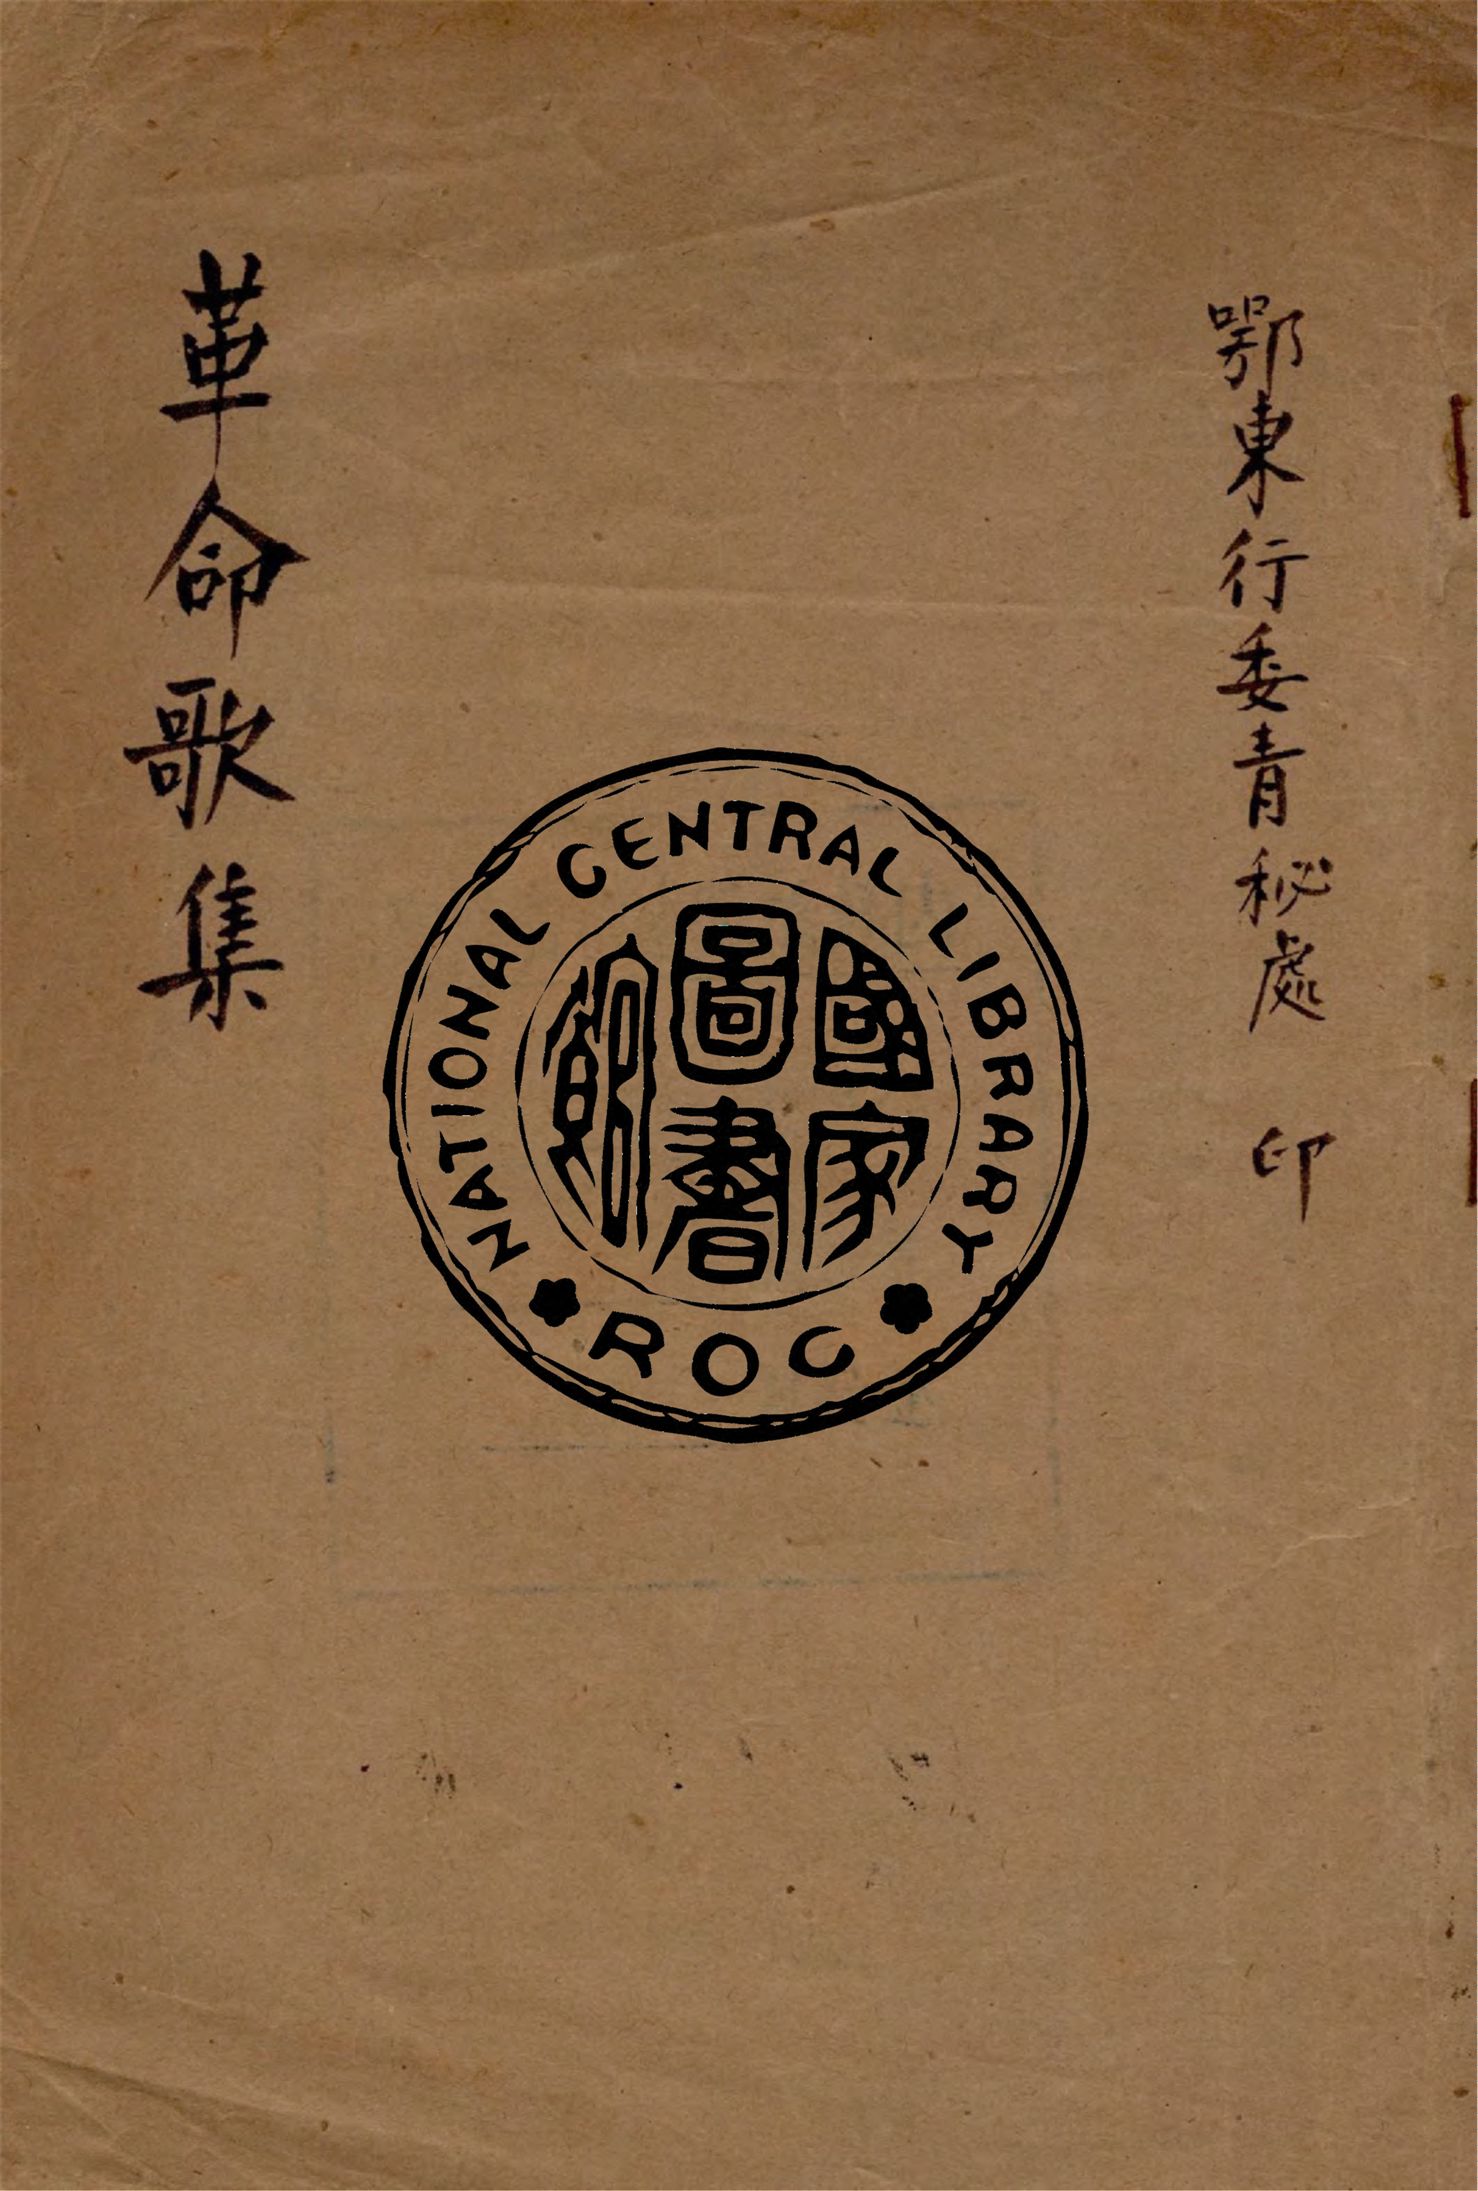 鄂東行委青秘處 印
革命歌集
NATIONAL CENTRAL LIBRARY
國家圖書館
ROC